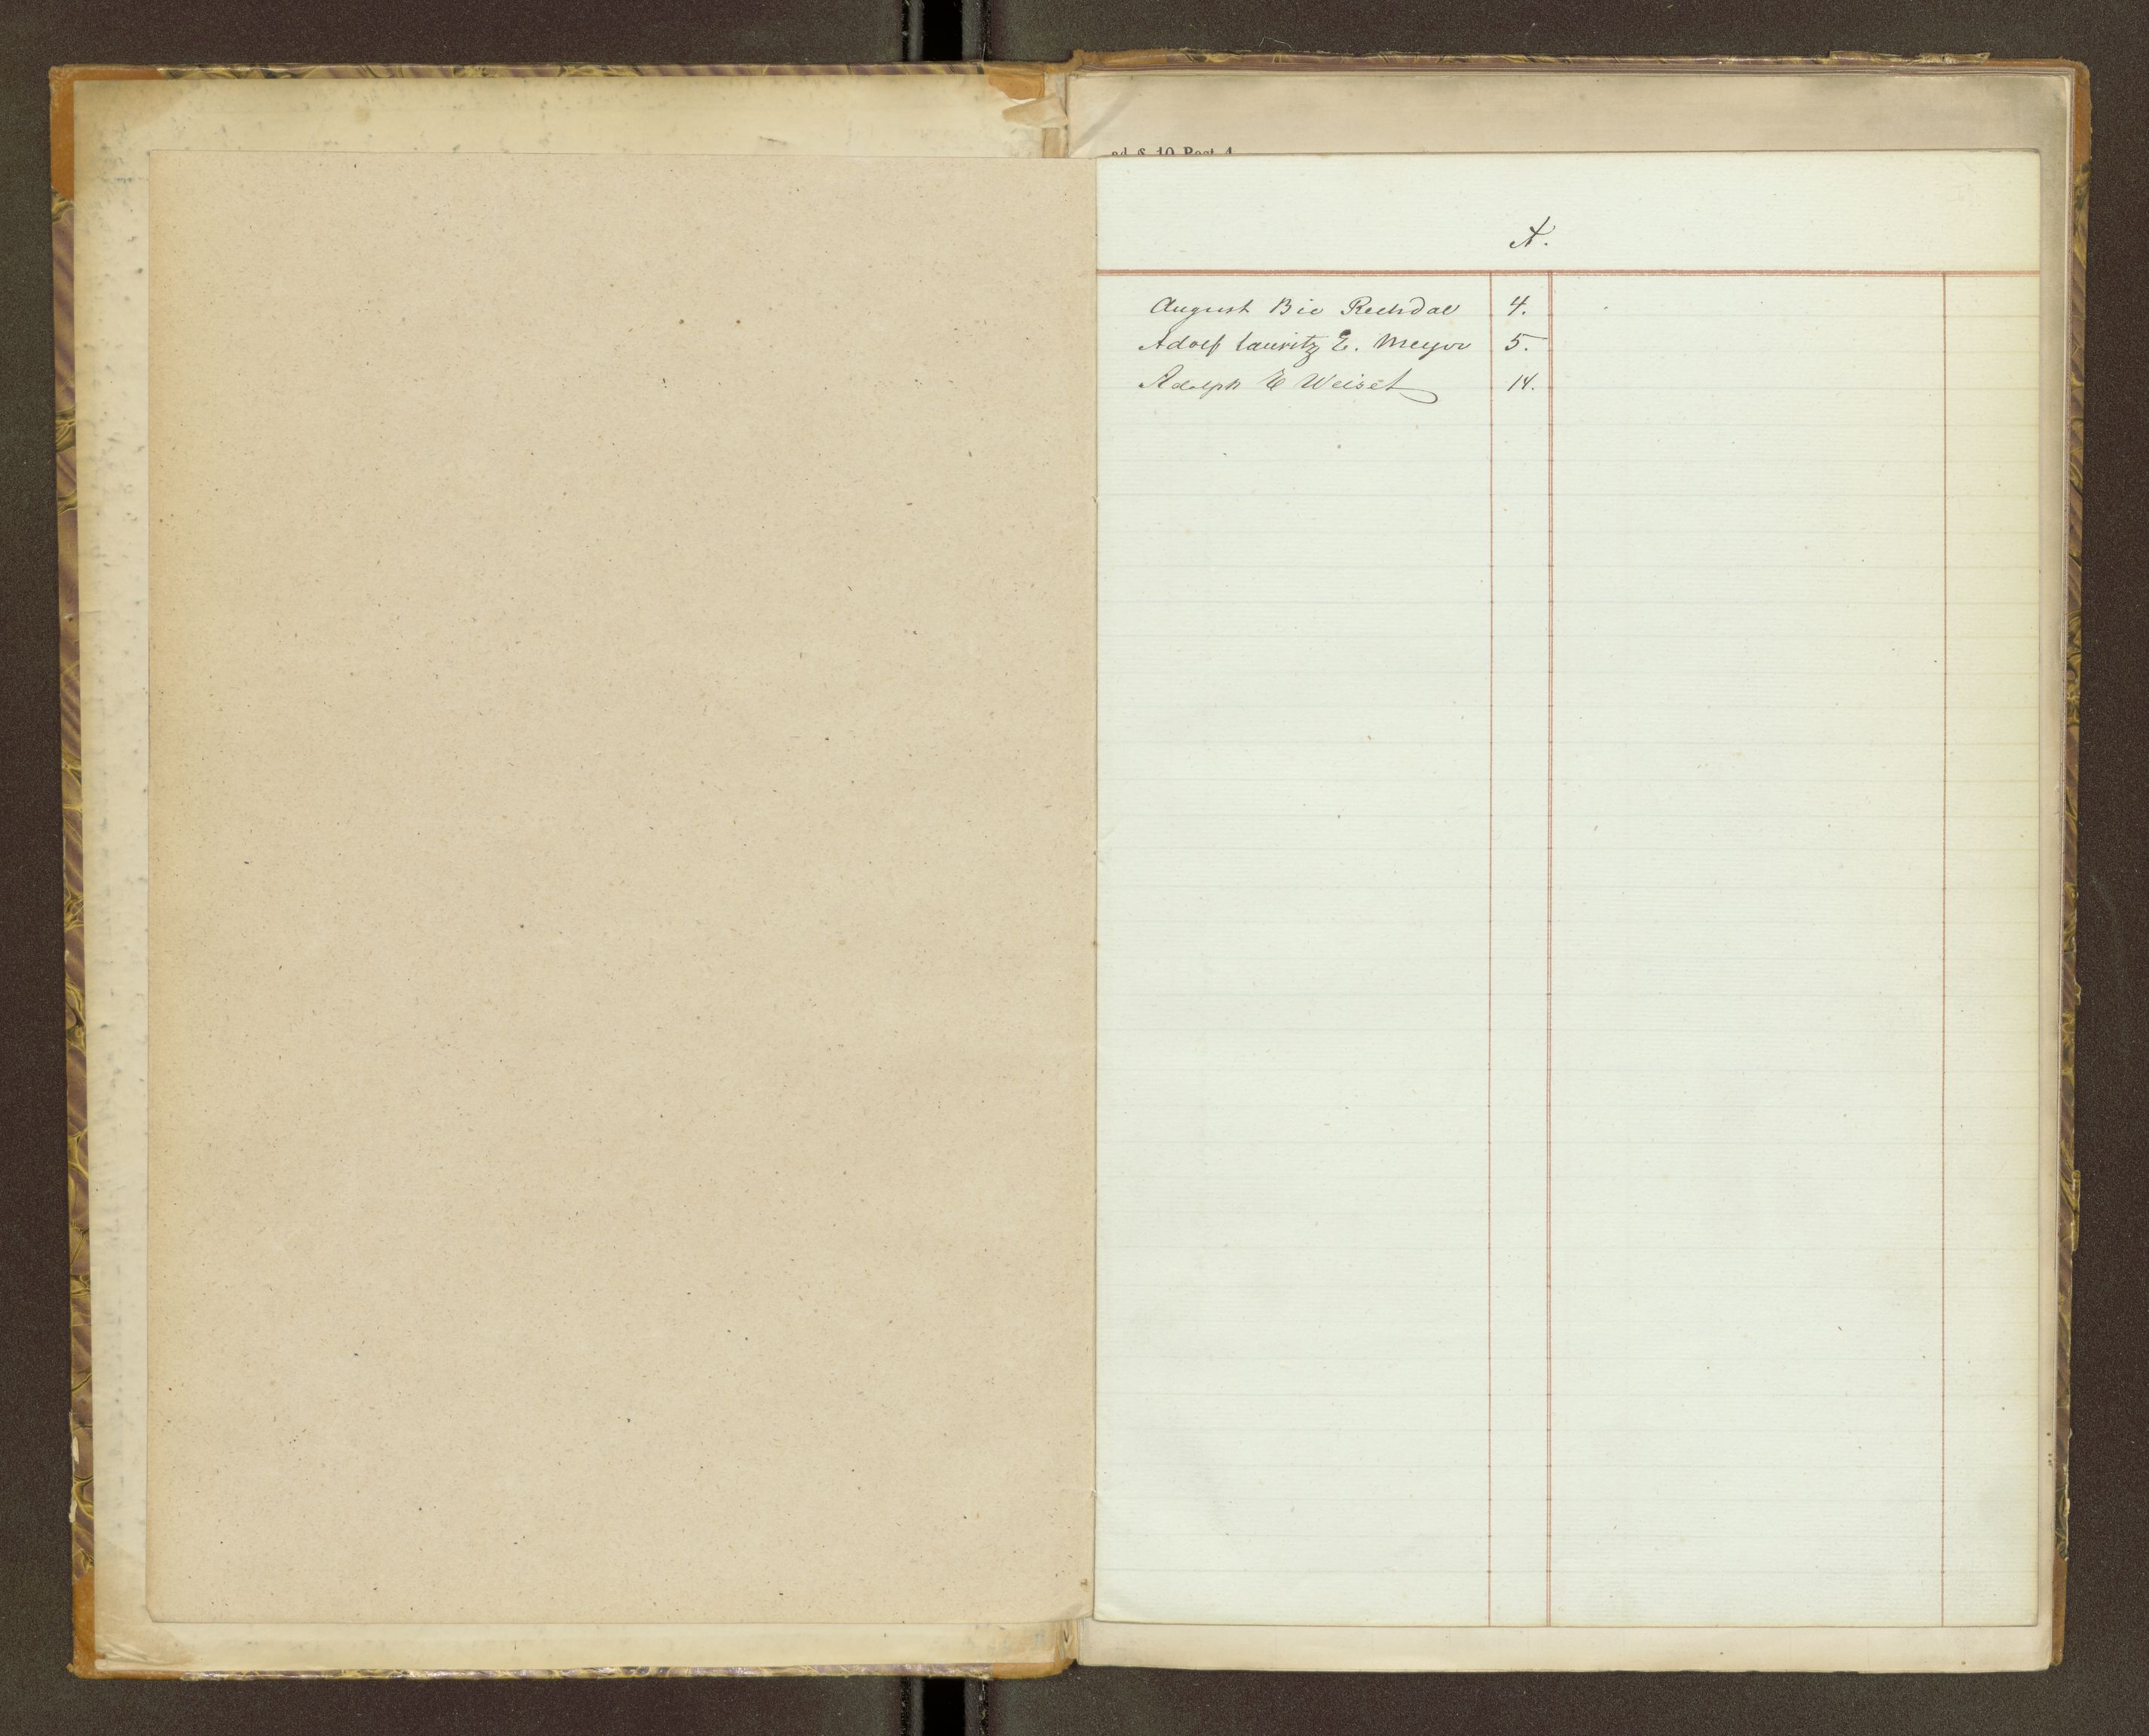 ad § 10 Post 4
A.
August Bie Reehdal 4.
Adolf Lauritz E. Meyer 5.
Adolph E Weiset 14.